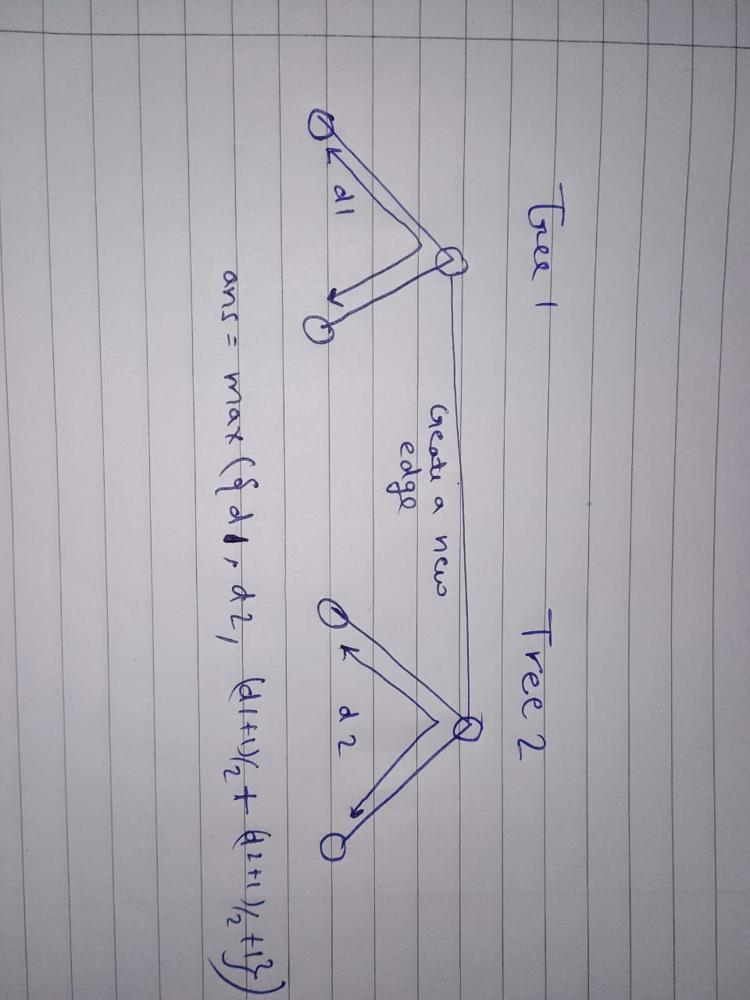 Tree 1
Tree 2
Create a new
edge
d1
d2
ans = max({d1, d2, (d1+1)/2 + (d2+1)/2 +1})